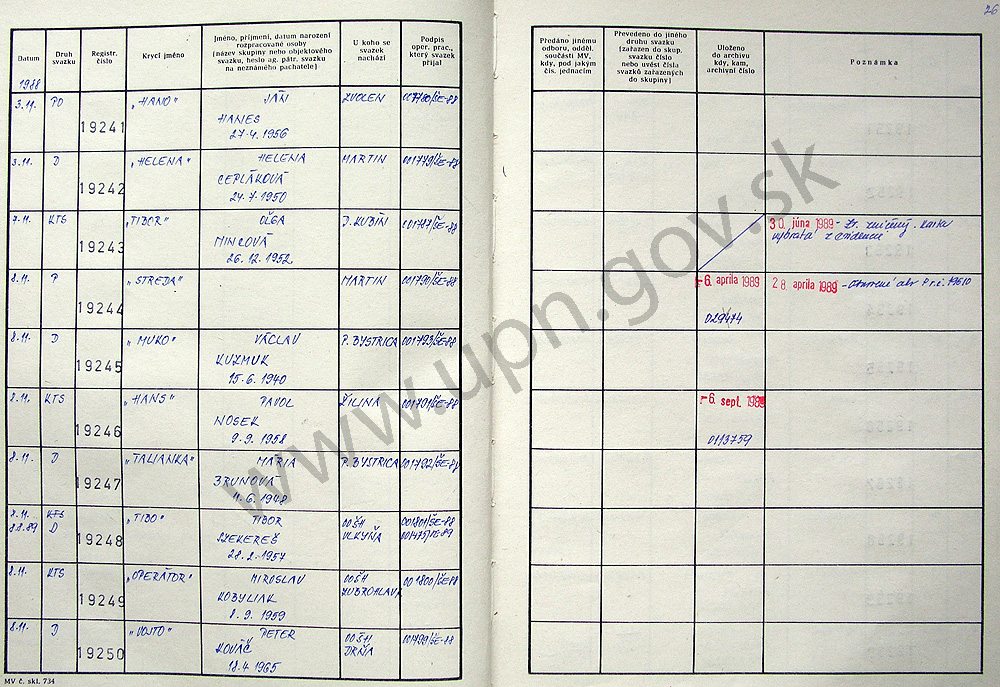 26
Datum
Druh
svazku
Registr.
číslo
Krycí jméno
Jméno, příjmení, datum narození
rozpracované osoby
(název skupiny nebo objektového
svazku, heslo ag. pátr. svazku
na neznámého pachatele)
U koho se
svazek
nachází
Podpis
oper. prac.,
který svazek
přijal
Předáno jinému
odboru, odděl.
součásti MV,
kdy, pod jakým
čís. jednacím
Převedeno do jiného
druhu svazku
(zařazen do skup.
svazků nebo
uvést čísla
svazků zařazených
do skupiny)
Uloženo
do archivu
kdy, kam,
archivní číslo
Poznámka
1988
3.11. PO 19241 „HANO" JÁN ZVOLEN 001780/ŠE-88
HANES
27-4. 1956
3.11. D 19242 „HELENA" HELENA MARTIN 001779/ŠE-88
CEPLÁKOVÁ
24-7. 1950
7-11. KTS 19243 „TIBOR" OĽGA D. KUBÍN 001787/ŠE-88
MINCOVÁ
26. 12. 1952
30. júna 1989 - Zv. zničený. karta
vybratá z evidencie
8.11. P 19244 „STREDA" MARTIN 001790/ŠE-88
-6. apríla 1989
029474
28. apríla 1989 - r.č. 19610
8.11. D 19245 „MUKO" VÁCLAV P. BYSTRICA 001793/ŠE-88
KUZMUK
15. 6. 1940
8.11. KTS 19246 „HANS" PAVOL ŽILINA 001791/ŠE-88
NOSEK
9. 9. 1958
-6. sept. 1989
0113759
8.11. D 19247 „TALIANKA" MÁRIA P. BYSTRICA 001792/ŠE-88
BRUNOVÁ
11. 6. 1948
8.11. KTS 19248 „TIBO" TIBOR OOŠH 001801/ŠE-88
8.2.89 D SZEKEREŠ VLKYŇA
28. 2. 1957
8.11. KTS 19249 „OPERÁTOR" MIROSLAV OOŠH 001800/ŠE-88
KOBYLIAK
8. 9. 1959
8.11. D 19250 „VOJTO" PETER OOŠH 001799/ŠE-88
KOVÁČ DRŇA
18. 4. 1965
MV č. skl. 734
www.upn.gov.sk